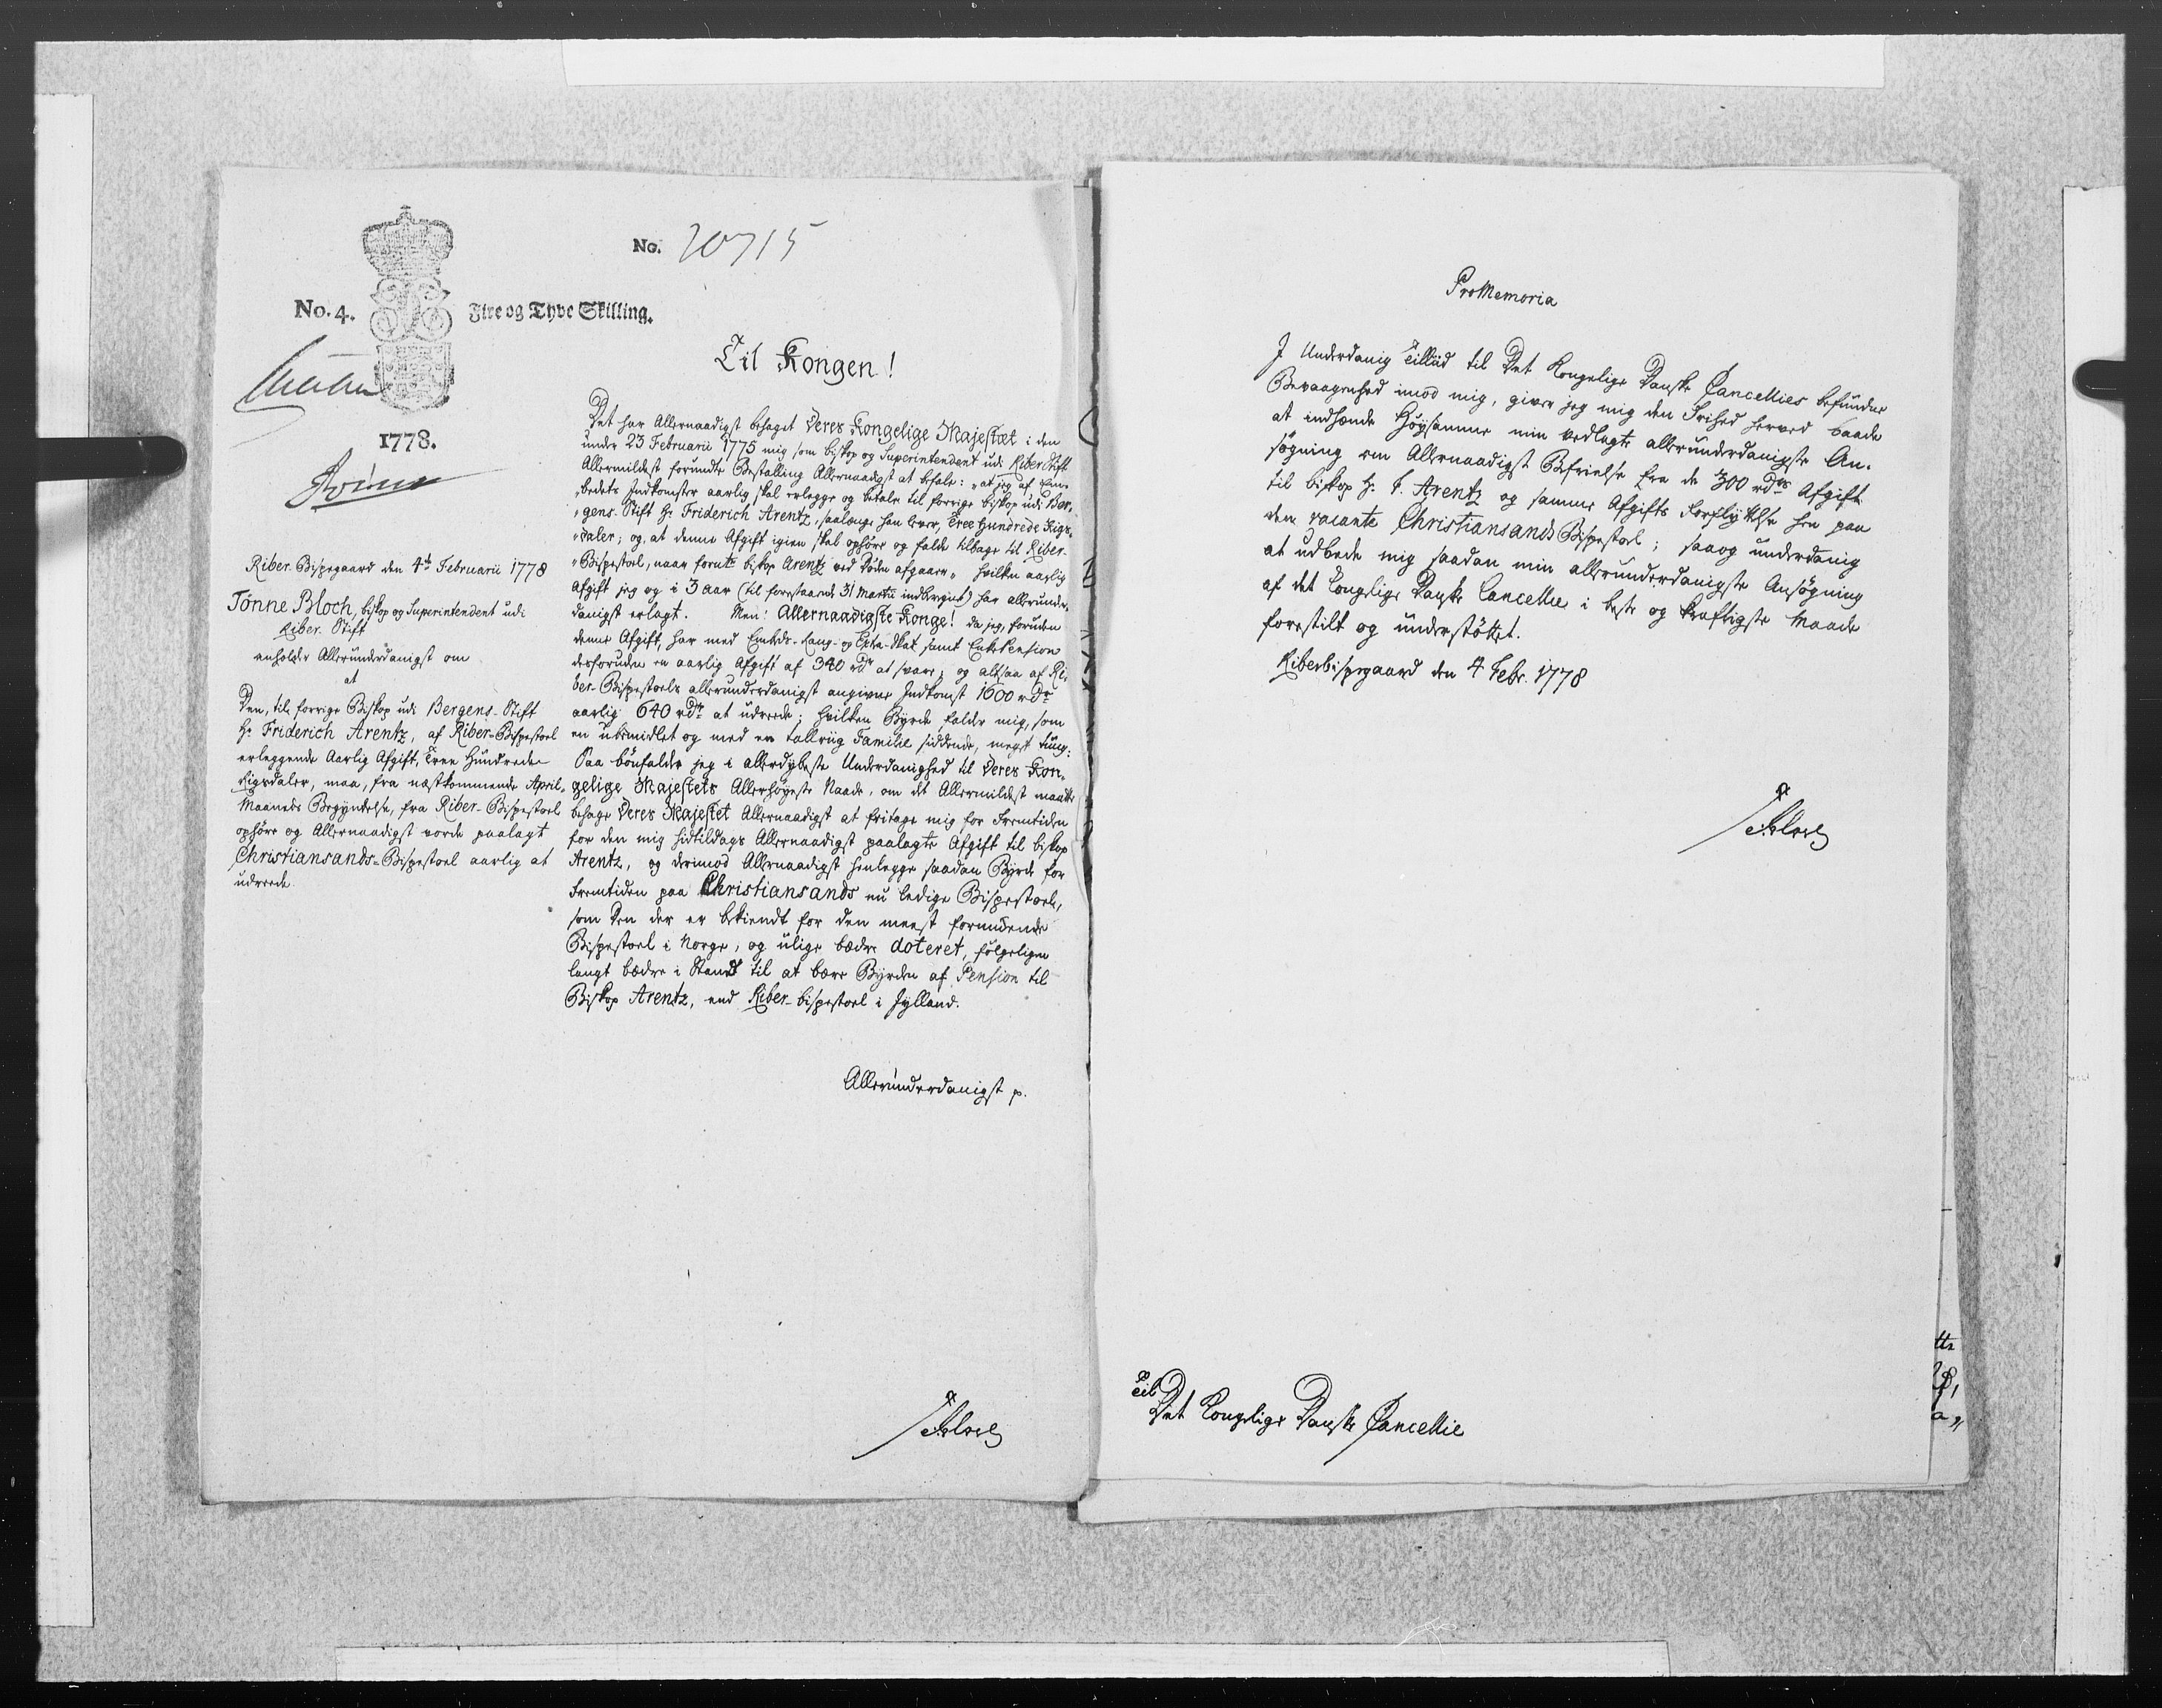 No. 20715
No. 4.
Fire og Tyve Skilling.
1778.
Til Kongen!
Riber-Bispegaard den 4de Februarii 1778
Tönne Bloch, biskop og Superintendent udi
Riber-Stift
anholder Allerunderdanigst om
at
Den, til forrige Biskop udi Bergens-Stift
Hr Friderich Arentz, af Riber-Bispestoel
erleggende Aarlig Afgift, Tree Hundrede
Rigsdaler, maa, fra nestkommende April-
Maaneds Begyndelse, fra Riber-Bispestoel
ophöre og Allernaadigst vorde paalagt
Christiansands-Bispestoel aarlig at
udreede.
Det har Allernaadigst behaget Deres Kongelige Majestæt i den
under 23 Februarii 1775 mig som biskop og Superintendent udi Riber Stift
Allermildest forundte Bestalling Allernaadigst at befale: "at jeg af Em-
"bedets Indkomster aarlig skal erlegge og betale til forrige biskop udi Ber-
"gens-Stift Hr Friderich Arentz, saalænge han lever, Tree Hundrede Rigs-
"daler; og, at denne Afgift igien skal ophöre og falde tilbage til Riber-
"Bispestoel, naar fornte biskop Arentz ved Döden afgaaer" hvilken aarlig
Afgift jeg og i 3 aar (til forestaaende 31 Martii indberegnet) har allerunder-
danigst erlagt. Men! Allernaadigste Konge! da jeg, foruden
denne Afgift, har med Embeds- Rang- og Extra-Skat samt Enke Pension
desforuden en aarlig Afgift af 340 rdr at svare; og altsaa af Ri-
ber-Bispestoels allerunderdanigst angivne Indkomst 1600 rdr
aarlig 640 rdr at udreede; hvilken Byrde falder mig, som
en ubemidlet og med en talrig Familie siddende, meget tung:
Saa bönfalder jeg i allerdybeste Underdanighed til Deres Kon-
gelige Majestets Allerhöyeste Naade, om det Allermildest maatte
behage Deres Majestet Allernaadigst at fritage mig for Fremtiden
for den mig hidtildags Allernaadigst paalagte Afgift til biskop
Arentz, og derimod Allernaadigst henlegge saadan Byrde for
Fremtiden paa Christiansands nu ledige Bispestoel,
som den der er bekiendt for den meest formuende
Bispestoel i Norge, og ulige bædre doteret, fölgeligen
langt bædre i Stand til at bære Byrden af Pension til
Biskop Arentz, end Riber-bispestoel i Jylland.
Allerunderdanigst p.
TBloch
ProMemoria
I Underdanig Tilliid til Det Kongelige Danske Cancellies befundne
Bevaagenhed imod mig, giver jeg mig den Frihed herved baade
at indsende Höysamme min vedlagte allerunderdanigste An-
søgning om Allernaadigst Befrielse fra de 300 rdrs Afgift
til biskop Hr F. Arentz og samme Afgifts Forflyttelse hen paa
den vacante Christiansands Bispestoel; saa og underdanig
at udbede mig saadan min allerunderdanigste Ansøgning
af det Kongelige Danske Cancellie i beste og kraftigste Maade
forestilt og understöttet.
Riberbispegaard den 4 Febr. 1778
TBloch
Til
Det Kongelige Danske Cancellie